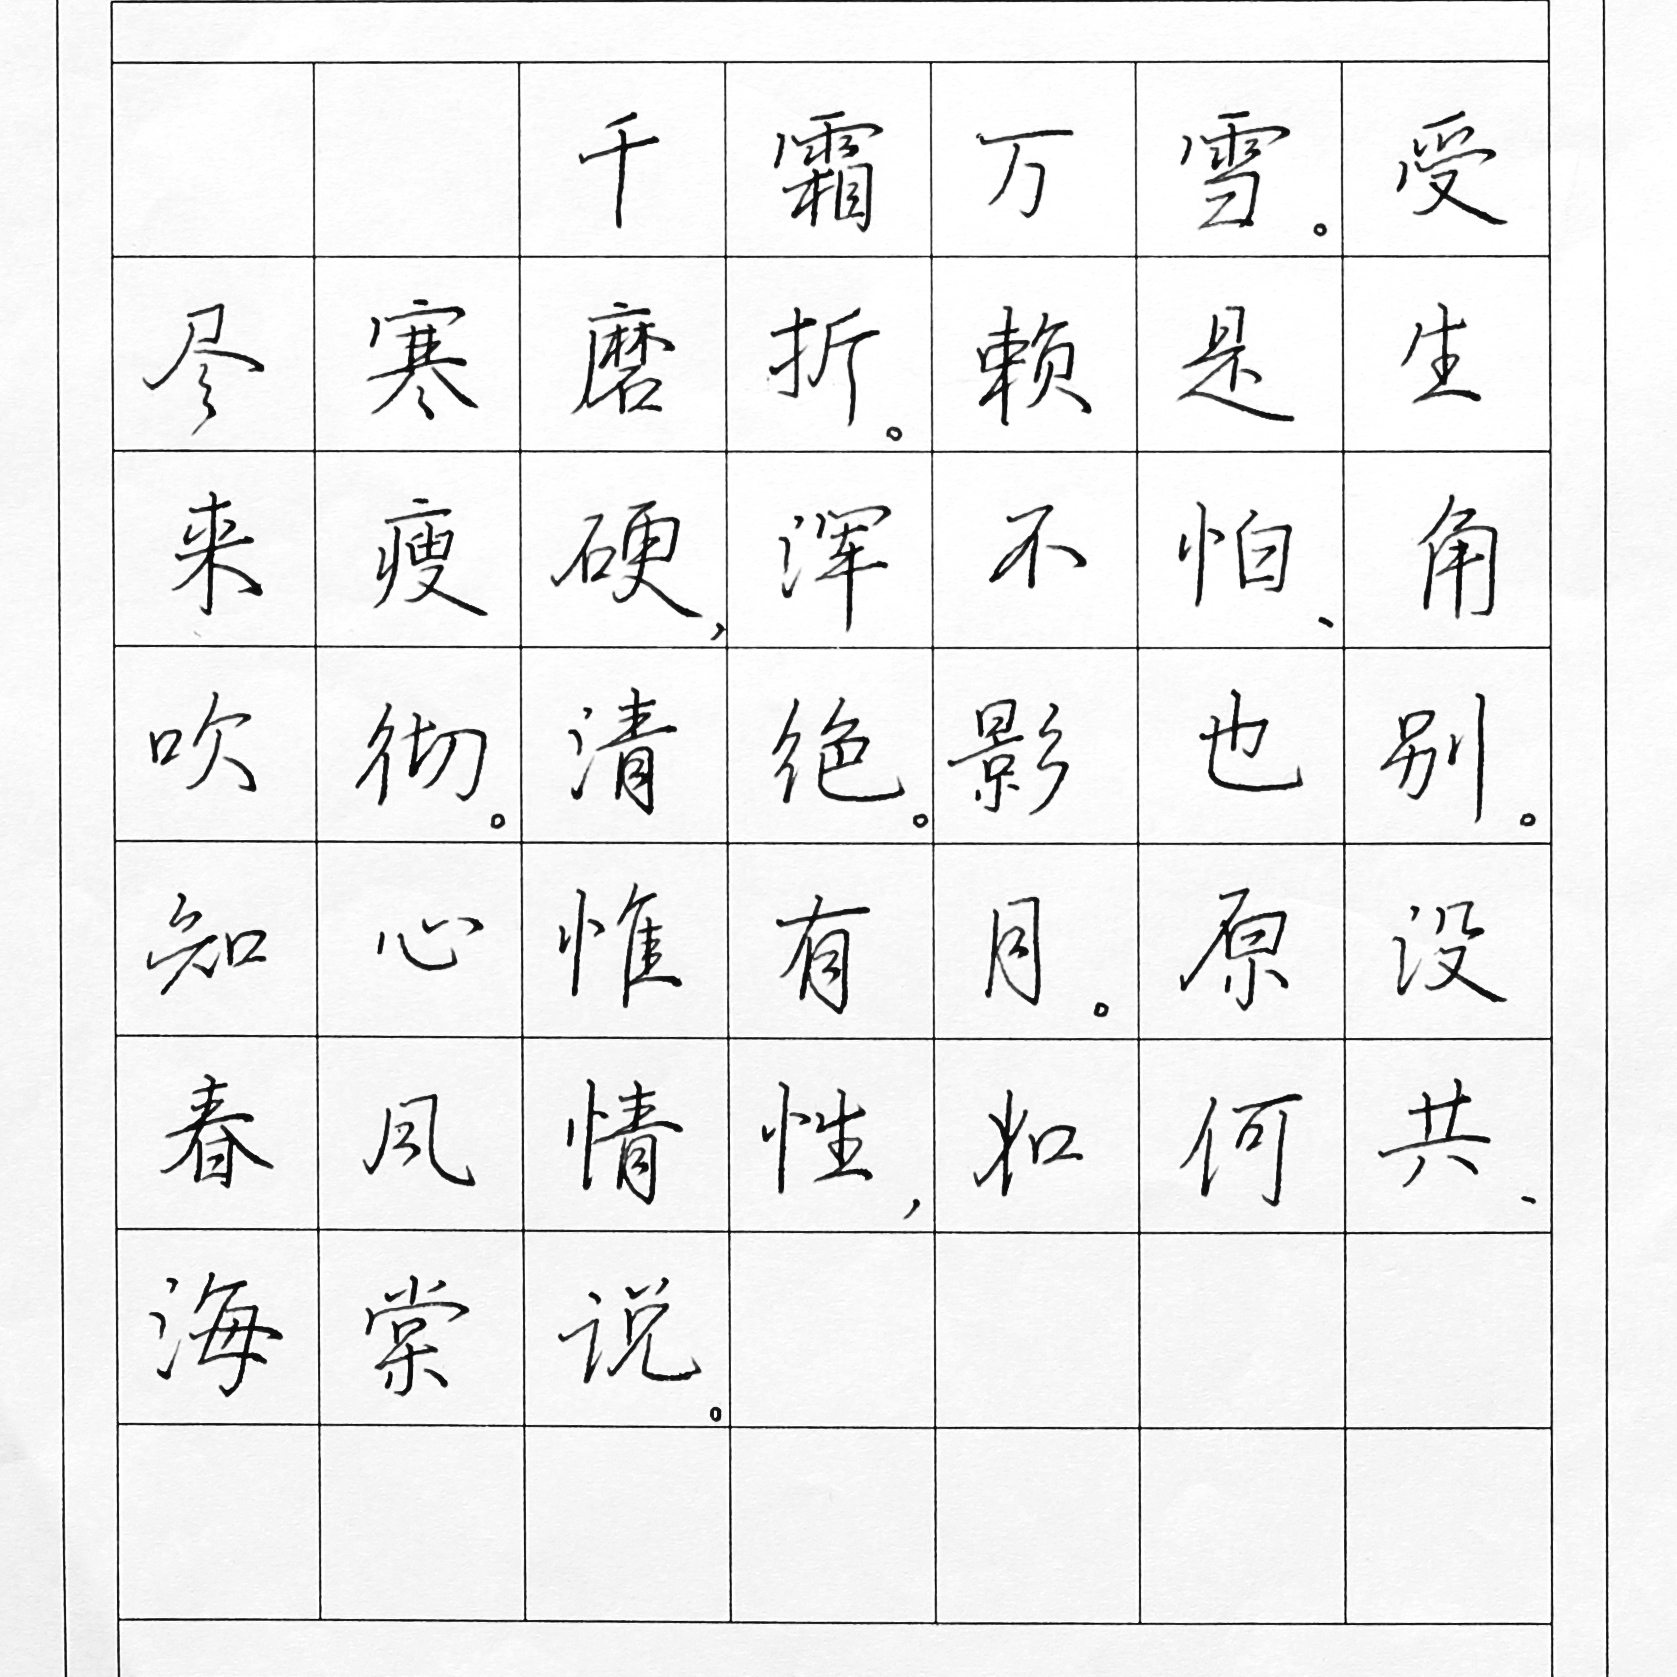 千霜万雪。受
尽寒磨折。赖是生
来瘦硬，浑不怕、角
吹彻。清绝。影也别。
知心惟有月。原没
春风情性，如何共、
海棠说。